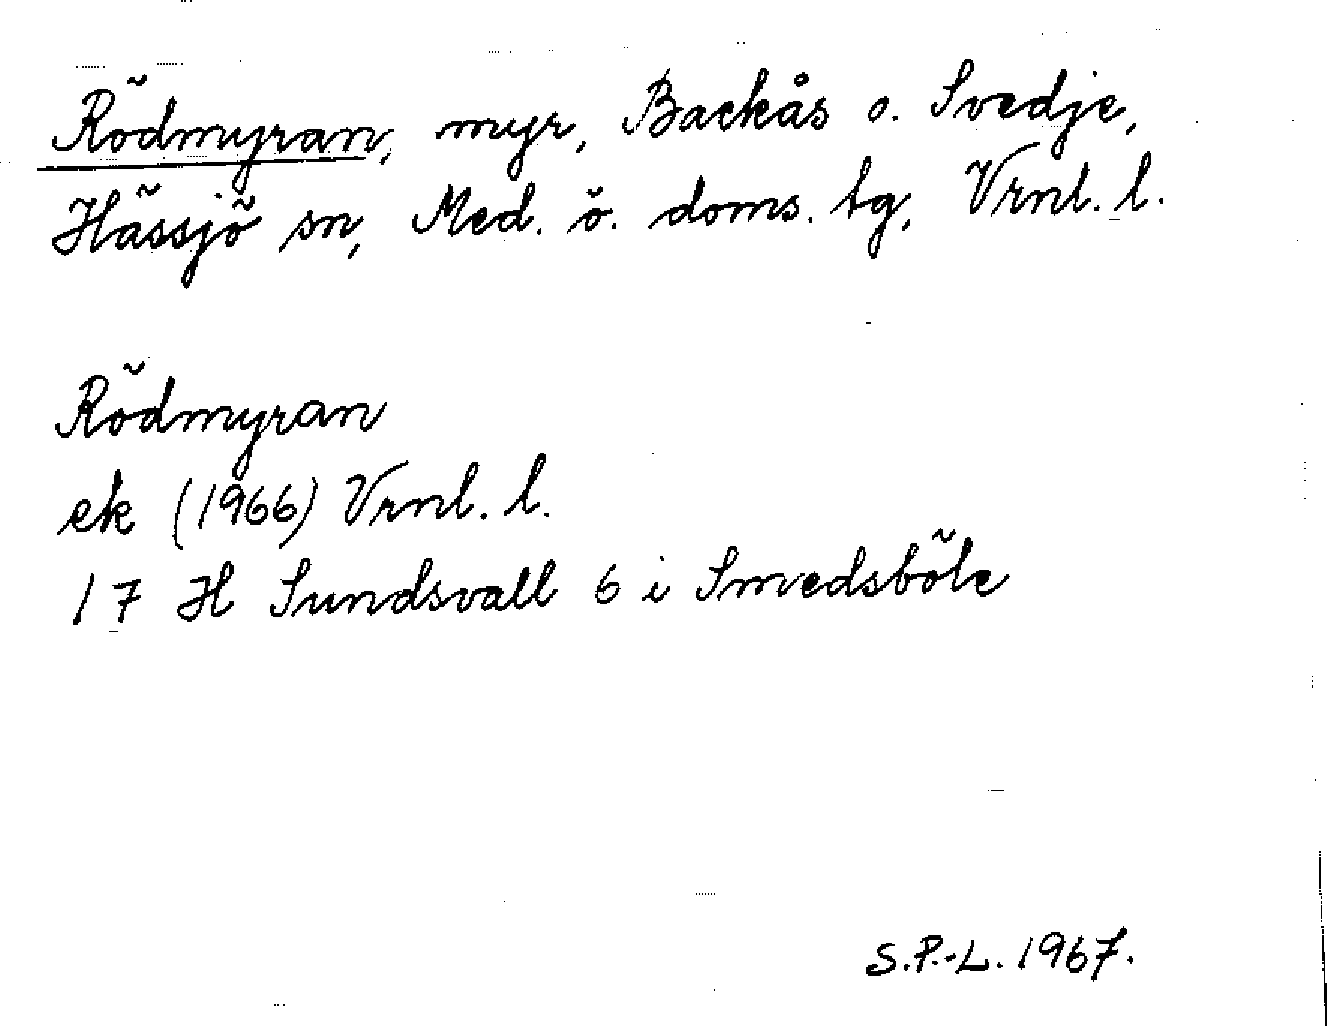 Rödmyran, myr, Backås o. Svedje,
Hässjö sn, Med. ö. doms. tg, Vrnl. l.
Rödmyran
ek (1966) Vrnl. l.
17 H Sundsvall 6 i Smedsböle
S.P.-L. 1967.